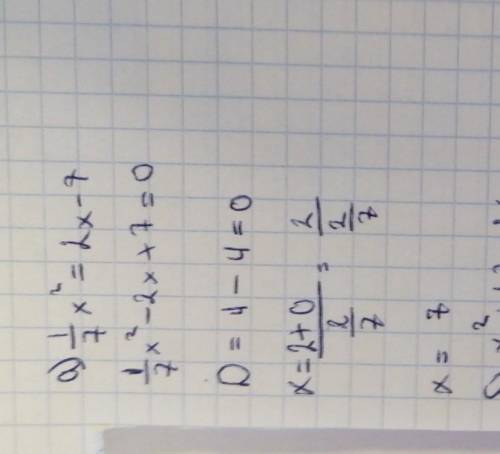 а) 1/7 x² = 2x - 7
1/7 x² - 2x + 7 = 0
D = 4 - 4 = 0
x = (2+0)/(2/7) = 2/(2/7)
x = 7